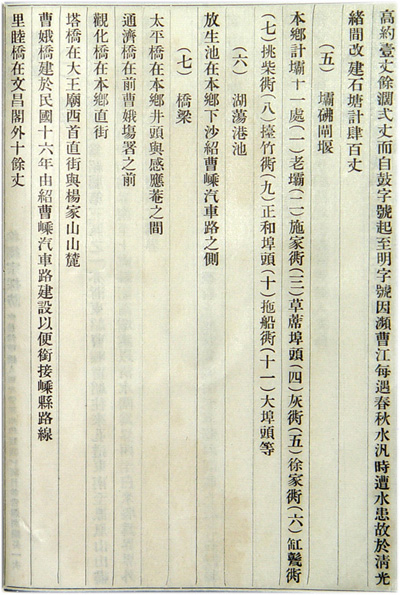 高約臺丈餘濶弍丈而自鼓字號起至明字號因瀕曹江每遇春秋水汎時遭水患故於淸光
緖間改建石塘計肆百丈
（五）　壩硎閘堰
本鄉計壩十一處（一）老壩（二）施家衖（三）草蓆埠頭（四）灰衖（五）徐家衖（六）缸甏衖
（七）挑柴衖（八）擡竹衖（九）正和埠頭（十）拖船衖（十一）大埠頭等
（六）　湖蕩港池
放生池在本鄉下沙紹曹嵊汽車路之側
（七）　橋梁
太平橋在本鄉井頭與感應菴之間
通濟橋在前曹娥塲署之前
觀化橋在本鄉直街
塔橋在大王廟西首直街與楊家山山麓
曹娥橋建於民國十六年由紹曹嵊汽車路建設以便銜接嵊縣路線
里睦橋在文昌閣外十餘丈